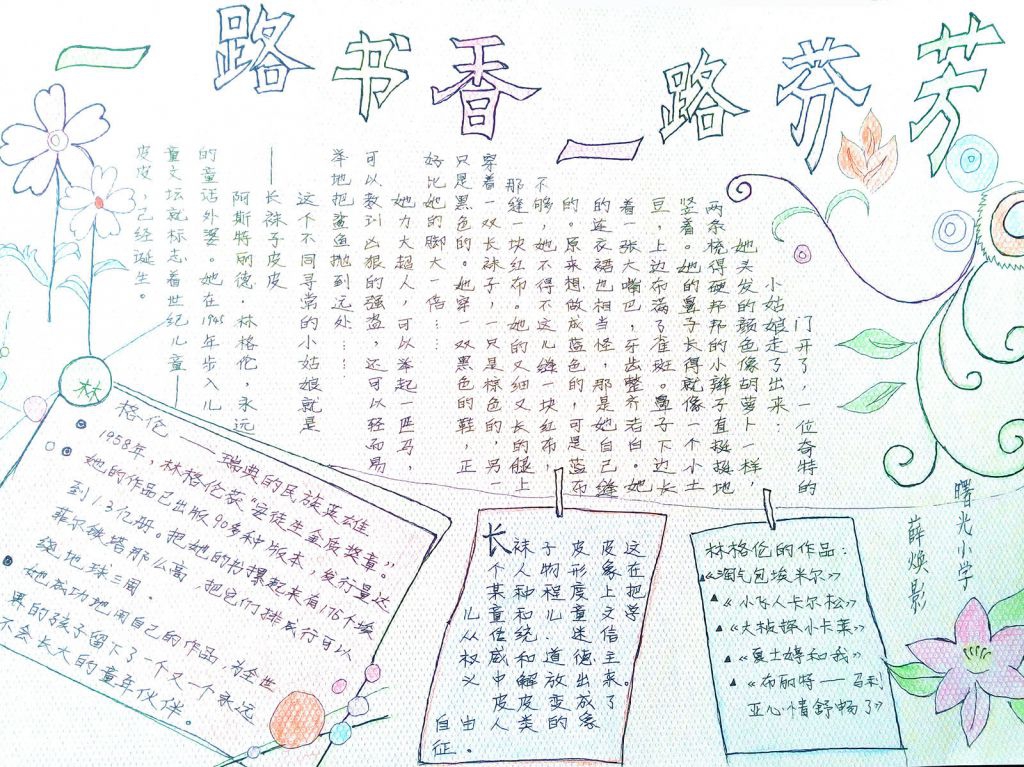 一路书香一路芬芳
门开了，一位奇特的
小姑娘走了出来：
她头发的颜色像胡萝卜一样，
两条梳得硬邦邦的小辫子直挺挺地
竖着。她的鼻子长得就像一个小土
豆，上边布满了雀斑。鼻子下边长
着一张大嘴巴，牙齿整齐洁白。她
的连衣裙也相当怪，那是她自己缝
的。原来想做成蓝色的，可是蓝布
不够，她不得不这儿缝一块红布，
那缝一块红布。她的又细又长的腿上
穿着一双长袜子，一只是棕色的，另一
只是黑色的。她穿一双黑色的鞋，正
好比她的脚大一倍…
她力大超人，可以举起一匹马，
可以教训凶狠的强盗，还可以轻而易
举地把鲨鱼抛到远处……
这个不同寻常的小姑娘就是
——长袜子皮皮
阿斯特丽德·林格伦，永远
的童话外婆。她在1945年步入儿
童文坛就标志着世纪儿童——
皮皮，已经诞生。
林
格伦——瑞典的民族英雄
1958年，林格伦获“安徒生金质奖章”。
她的作品已出版90多种版本，发行量达
到1.3亿册。把她的书摞起来有175个埃
菲尔铁塔那么高，把它们排成行可以
绕地球三周。
她成功地用自己的作品，为全世
界的孩子留下了一个又一个永远
不会长大的童年伙伴。
长袜子皮皮这
个人物形象在
某种程度上把
儿童和儿童文学
从传统、迷信
权威和道德主
义中解放出来。
皮皮变成了
自由人类的象
征。
林格伦的作品：
▲《淘气包埃米尔》
▲《小飞人卡尔松》
▲《大侦探小卡莱》
▲《爱士婷和我》
▲《布丽特——马利
亚心情舒畅了》
曙光小学
薛焕影